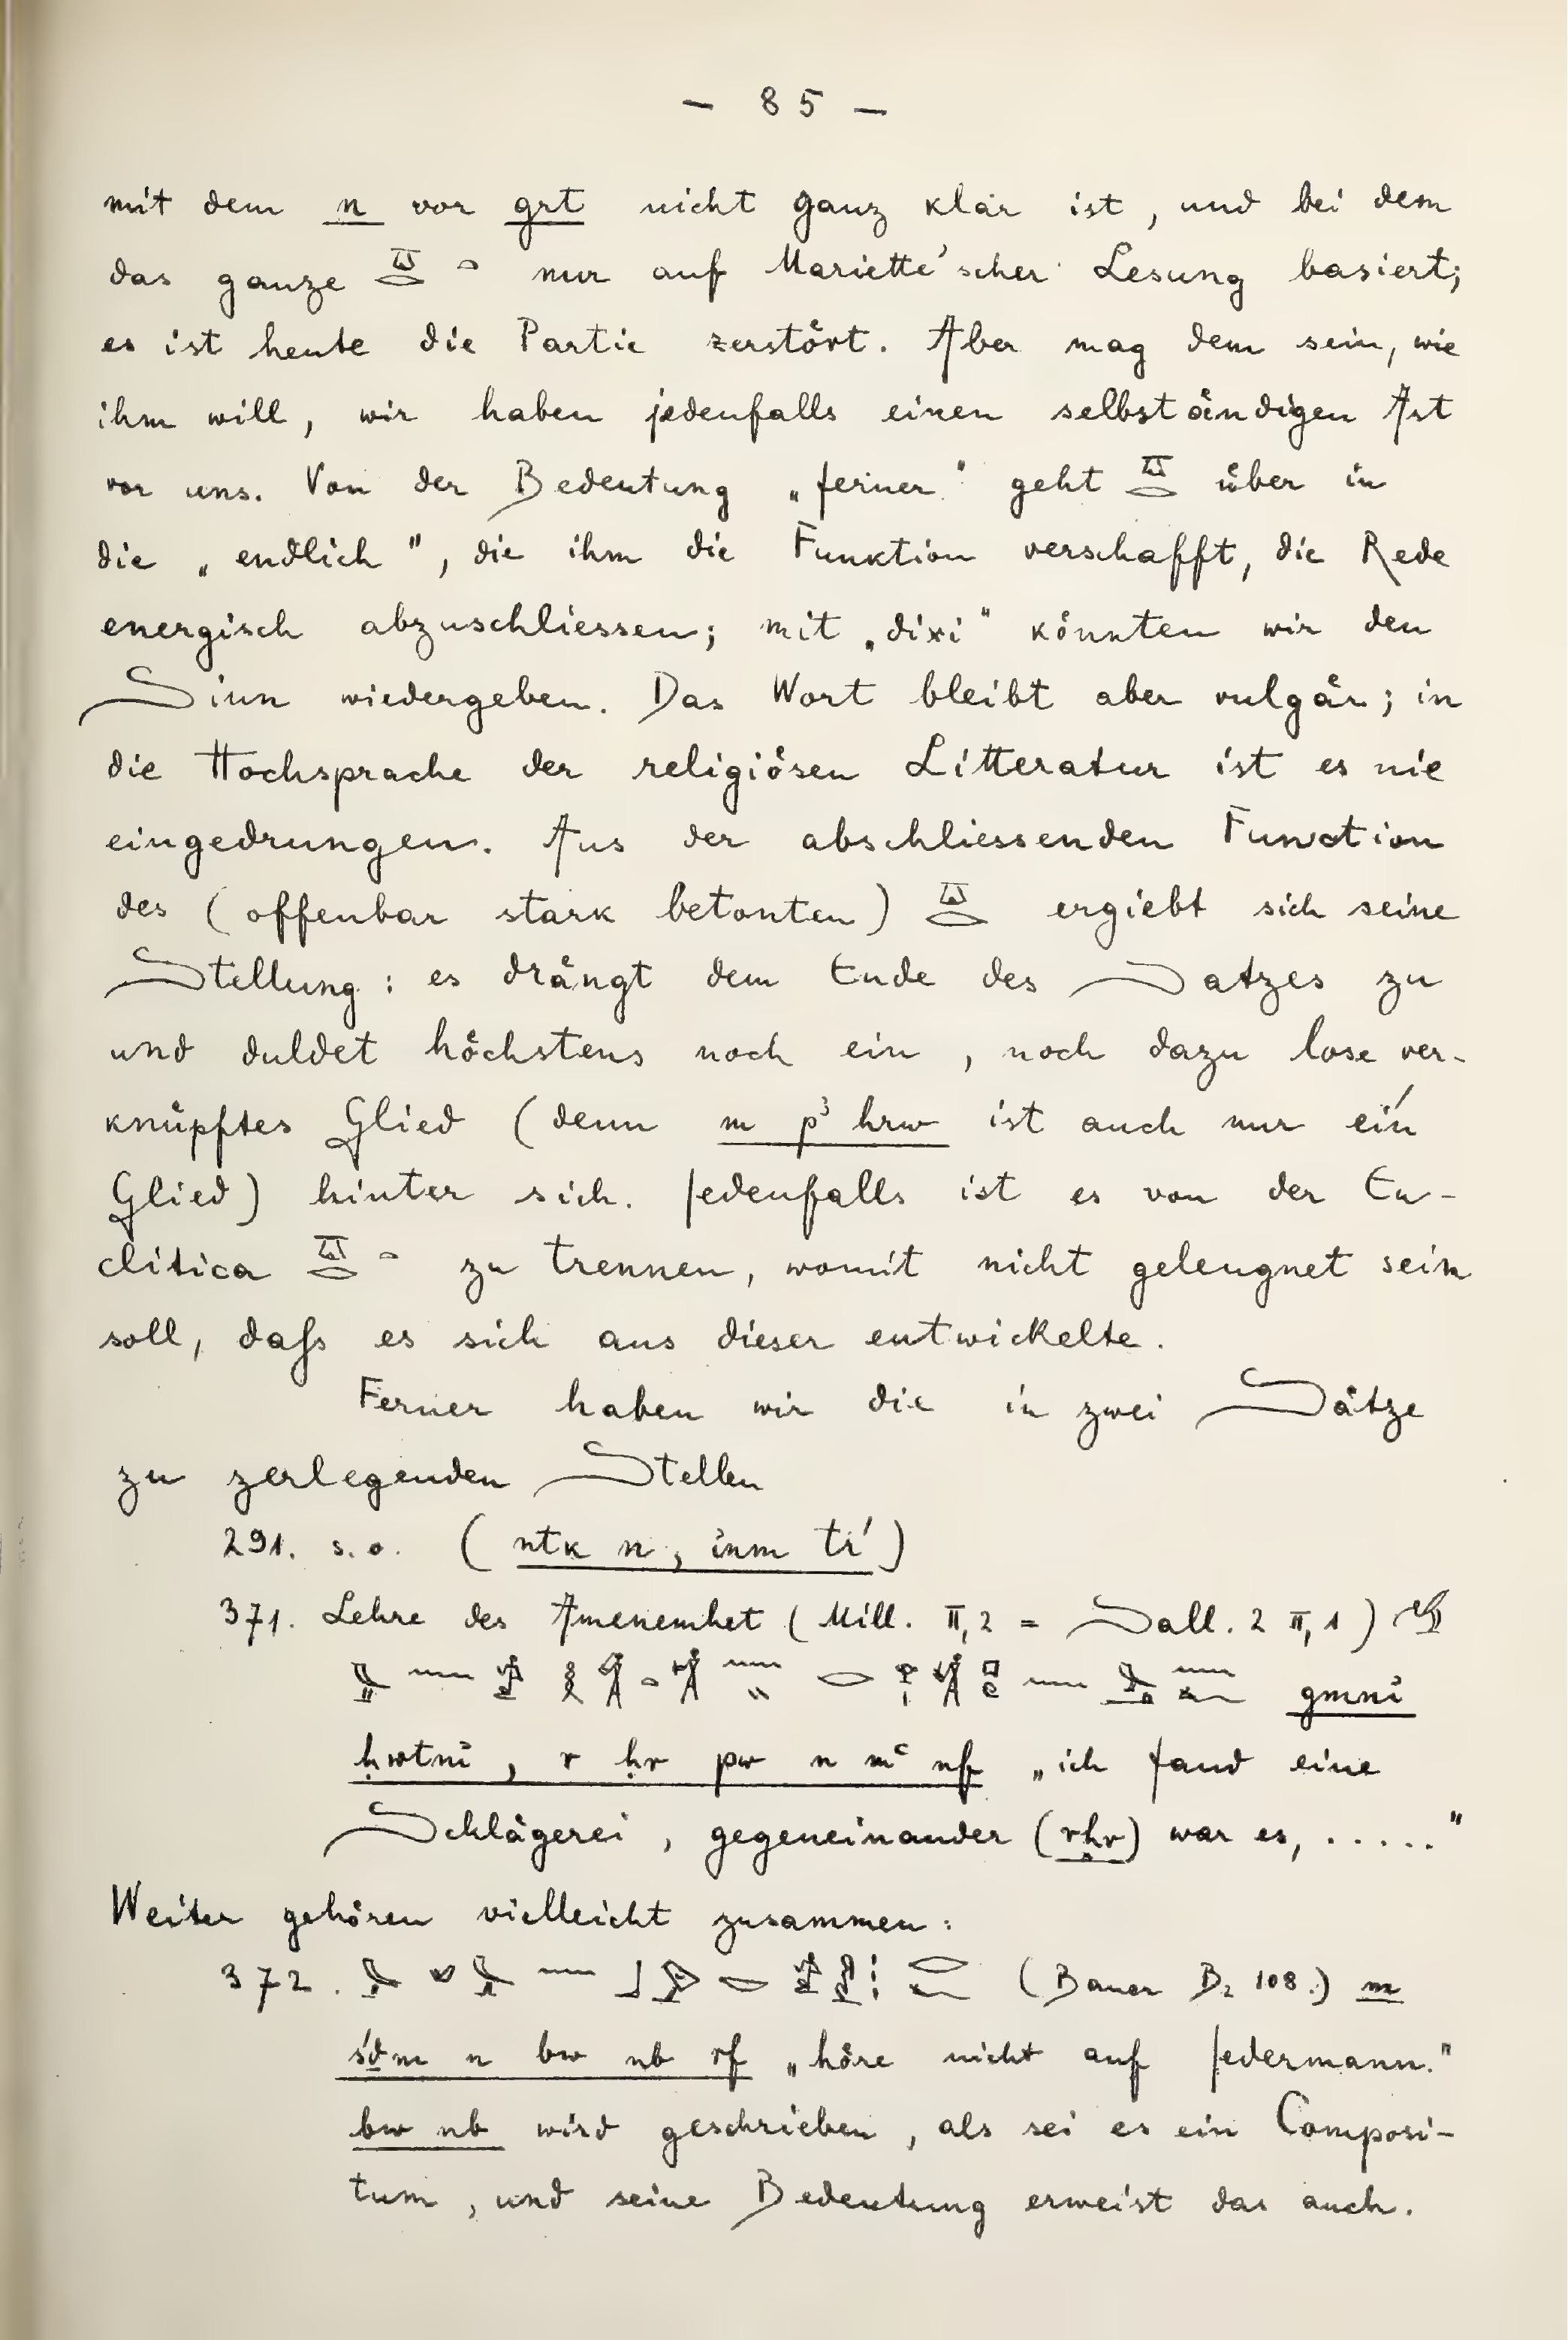 — 85 —
mit dem n vor grt nicht ganz klar ist, und bei dem
das ganze 𓎼𓂋 𓏏 nur auf Mariette'scher Lesung basiert;
es ist heute die Partie zerstört. Aber mag dem sein, wie
ihm will, wir haben jedenfalls einen selbständigen Ast
vor uns. Von der Bedeutung „ferner" geht 𓎼𓂋 über in
die „endlich", die ihm die Funktion verschafft, die Rede
energisch abzuschliessen; mit „dixi" könnten wir den
Sinn wiedergeben. Das Wort bleibt aber vulgär; in
die Hochsprache der religiösen Litteratur ist es nie
eingedrungen. Aus der abschliessenden Function
des (offenbar stark betonten) 𓎼𓂋 ergiebt sich seine
Stellung: es drängt dem Ende des Satzes zu
und duldet höchstens noch ein, noch dazu lose ver-
knüpftes Glied (denn m pꜣ hrw ist auch nur ein
Glied) hinter sich. Jedenfalls ist es von der En-
clitica 𓎼𓂋 𓏏 zu trennen, womit nicht geleugnet sein
soll, daſs es sich aus dieser entwickelte.
Ferner haben wir die in zwei Sätze
zu zerlegenden Stellen
291. s. o. (ntk n, inm tr)
371. Lehre des Amenemhet (Mill. II, 2 = Sall. 2 II, 1)
gmni
ḥwtni, r ḥr pw n mꜥ nf „ich fand eine
Schlägerei, gegeneinander (rḥr) war es, ....."
Weiter gehören vielleicht zusammen:
372. (Bauer B₂ 108.) m
śḏm n bw nb rf „höre nicht auf Jedermann."
bw nb wird geschrieben, als sei es ein Composi-
tum, und seine Bedeutung erweist das auch.